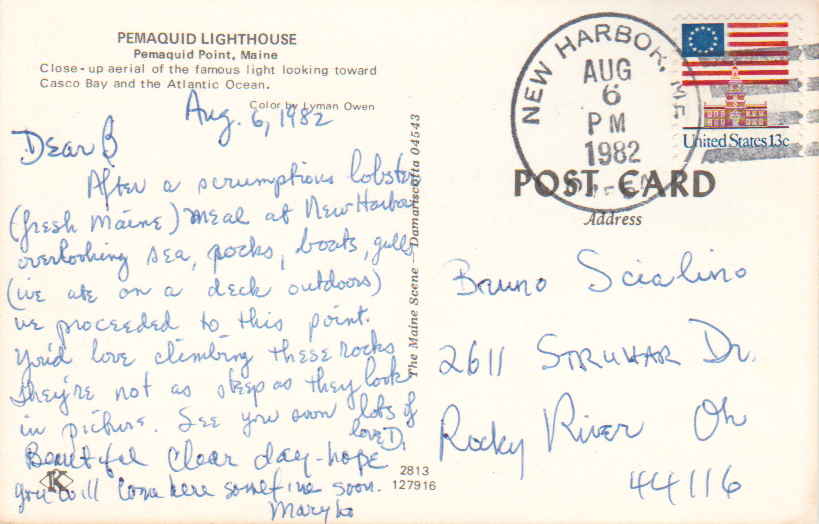 PEMAQUID LIGHTHOUSE
Pemaquid Point, Maine
Close-up aerial of the famous light looking toward
Casco Bay and the Atlantic Ocean.
Color by Lyman Owen
Aug. 6, 1982
Dear B
After a scrumptious lobster
(fresh Maine) meal at New Harbor
overlooking sea, rocks, boats, gulls
(we ate on a deck outdoors)
we proceeded to this point.
You'd love climbing these rocks
They're not as steep as they look
in picture. See you soon lots of
love D.
Beautiful clear day-hope
you will come here sometime soon.
Mary Lo
K
2813
127916
The Maine Scene — Damariscotta 04543
NEW HARBOR, ME
AUG
6
PM
1982
United States 13c
POST CARD
Address
Bruno Scialino
2611 Struhar Dr.
Rocky River Oh
44116